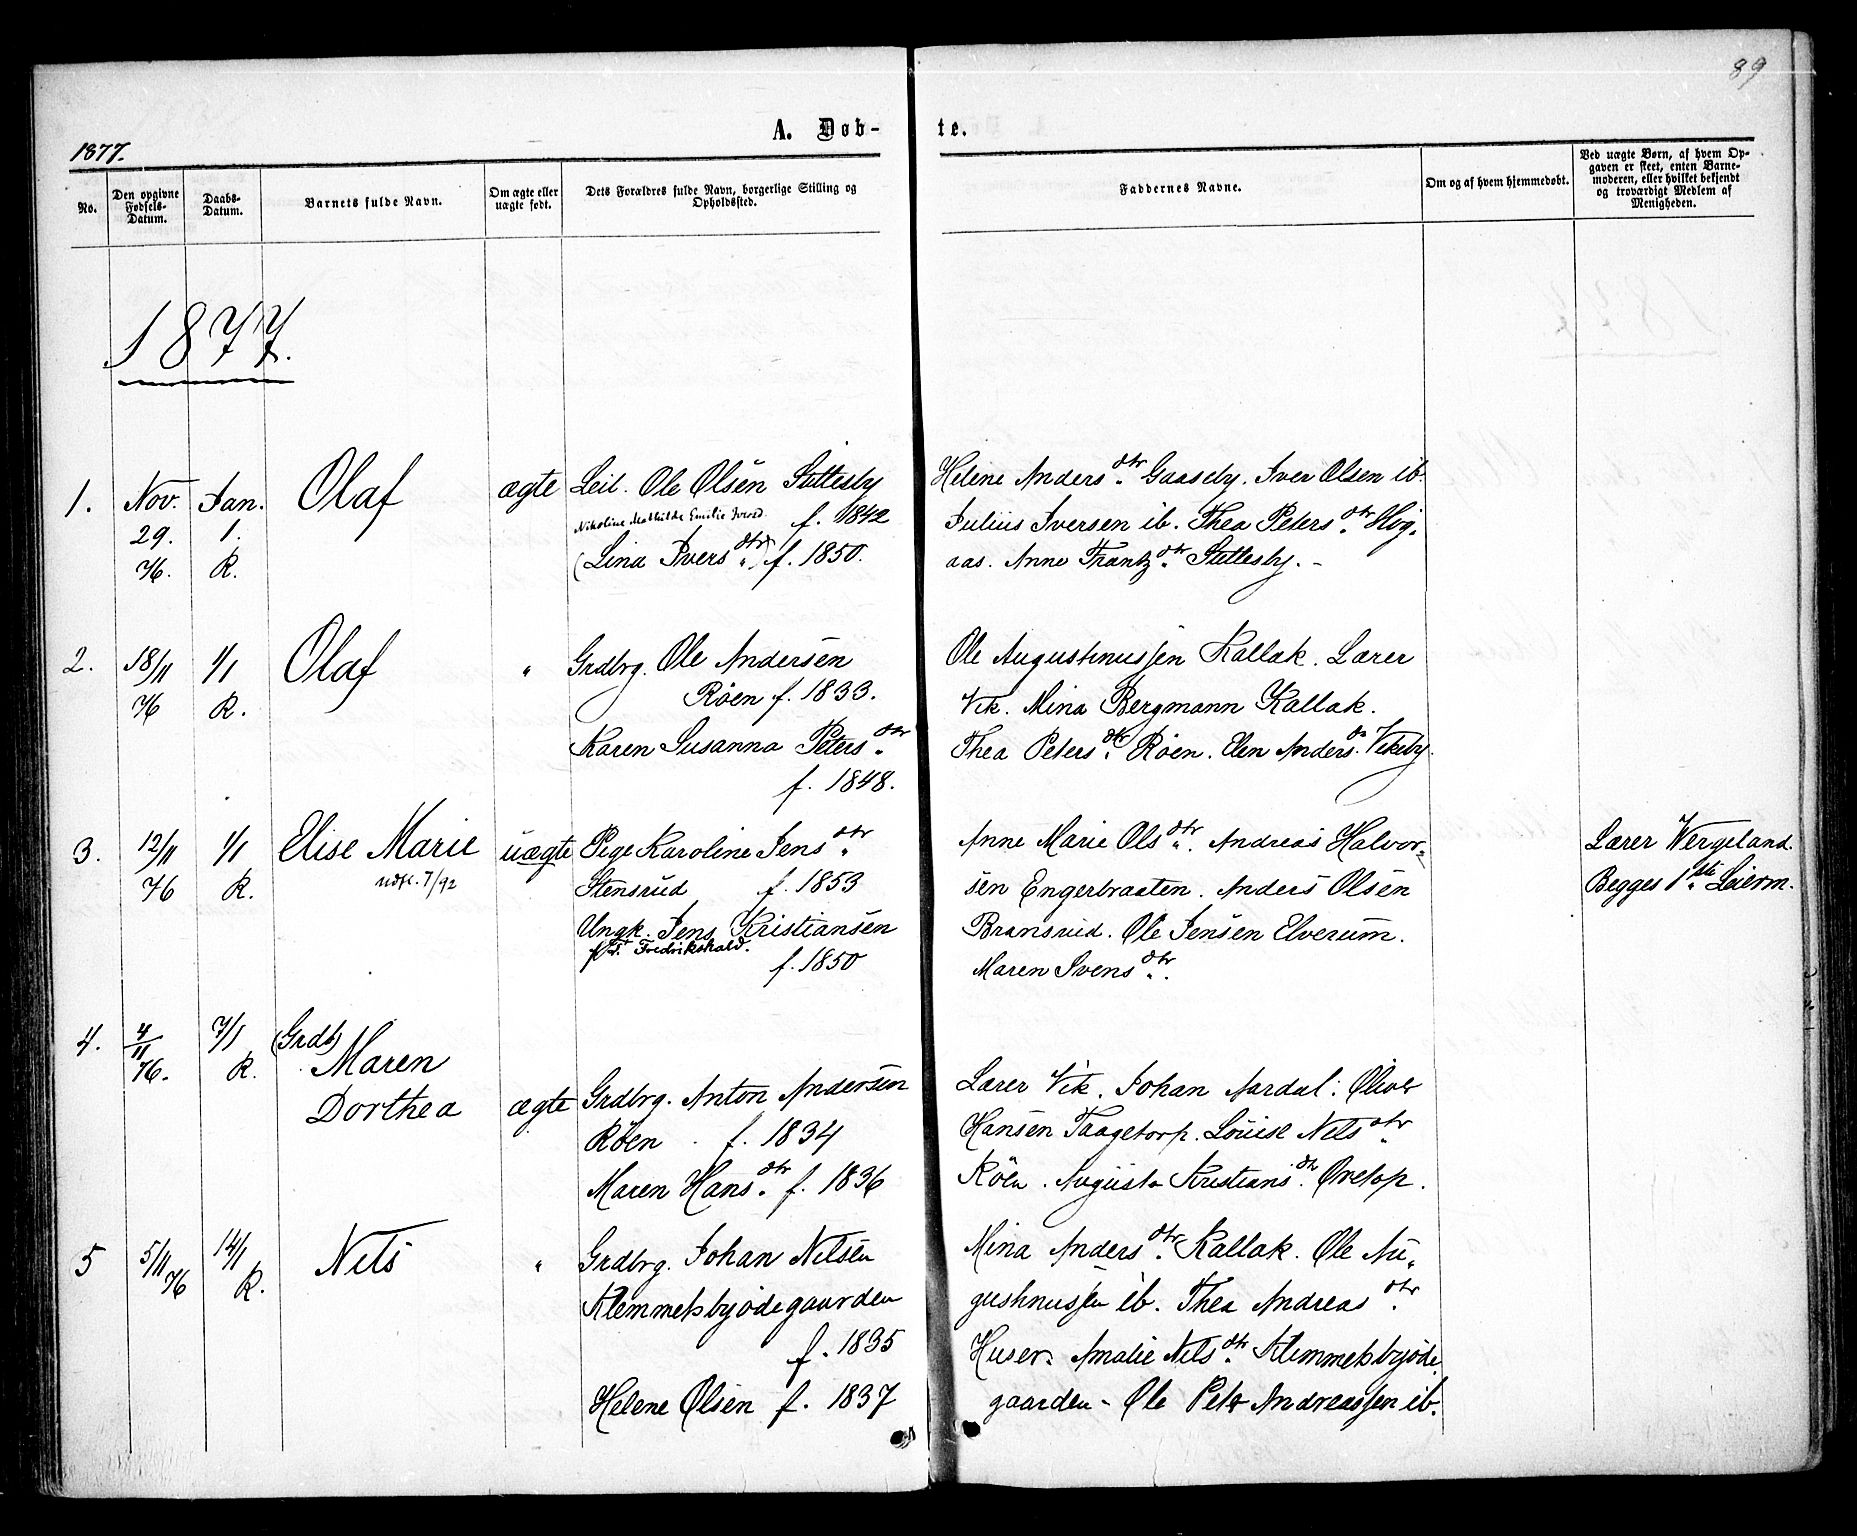 89
A. Døb-
te.
1877.
No.
Den opgivne
Fødsels-
Datum.
Daabs-
Datum.
Barnets fulde Navn.
Om ægte eller
uægte født.
Dets Forældres fulde Navn, borgerlige Stilling og
Opholdssted.
Faddernes Navne.
Om og af hvem hjemmedøbt.
Ved uægte Børn, af hvem Op-
gaven er skeet, enten Barne-
moderen, eller hvilket bekjendt
og troværdigt Medlem af
Menigheden.
1877.
1.
Nov.
29.
76.
Jan.
1.
R.
Olaf
ægte
Leil. Ole Olsen Sletteby
Nikoline Mathilde Emilie Iversd.
f. 1842
(Lina Ivers dtr) f. 1850.
Helene Anders dtr Gaaseby. Iver Olsen ib.
Julius Iversen ib. Thea Peters dtr Hög-
aas. Anne Frantz dtr Sletteby. -
2.
18/11
76
1/1
R.
Olaf
"
Grdbrg. Ole Andersen
Röen f. 1833.
Karen Susanna Peters dtr
f. 1848.
Ole Augustinussen Kallak. Lærer
Vik. Mina Bergmann Kallak.
Thea Peters dtr Röen. Elen Anders d. Vikeby.
3.
12/11
76
1/1
R.
Elise Marie
udfl. 7/92
uægte
Pige Karoline Jens dtr
Stensrud f. 1853
Ungk. Jens Kristiansen
p.t. Fredrikshald.
f. 1850
Anne Marie Ols dtr. Andreas Halvor-
sen Engerbraaten. Anders Olsen
Bransrud. Ole Jensen Elverum.
Maren Svens dtr.
Lærer Wergeland.
Begges 1ste Leierm.
4.
4/11
76.
7/1
R.
(Grdb)
Maren
Dorthea
ægte
Grdbrg. Anton Andersen
Röen f. 1834
Maren Hans dtr f. 1836
Lærer Vik. Johan Aardal. Oliver
Hansen Taagetorp. Louise Nels dtr
Röen. Augusta Kristians d. Ovetop.
5
5/11
76
14/1
R.
Nels
"
Grdbrg. Johan Nelsen
Klemmetsbyödegaarden
f. 1835
Helene Olsen f. 1837
Mina Anders dtr Kallak. Ole Au-
gustinussen ib. Thea Andreas dtr
Huser. Amalie Nels dtr Klemmetsbyöde
gaarden - Ole Petr Andreassen ib.